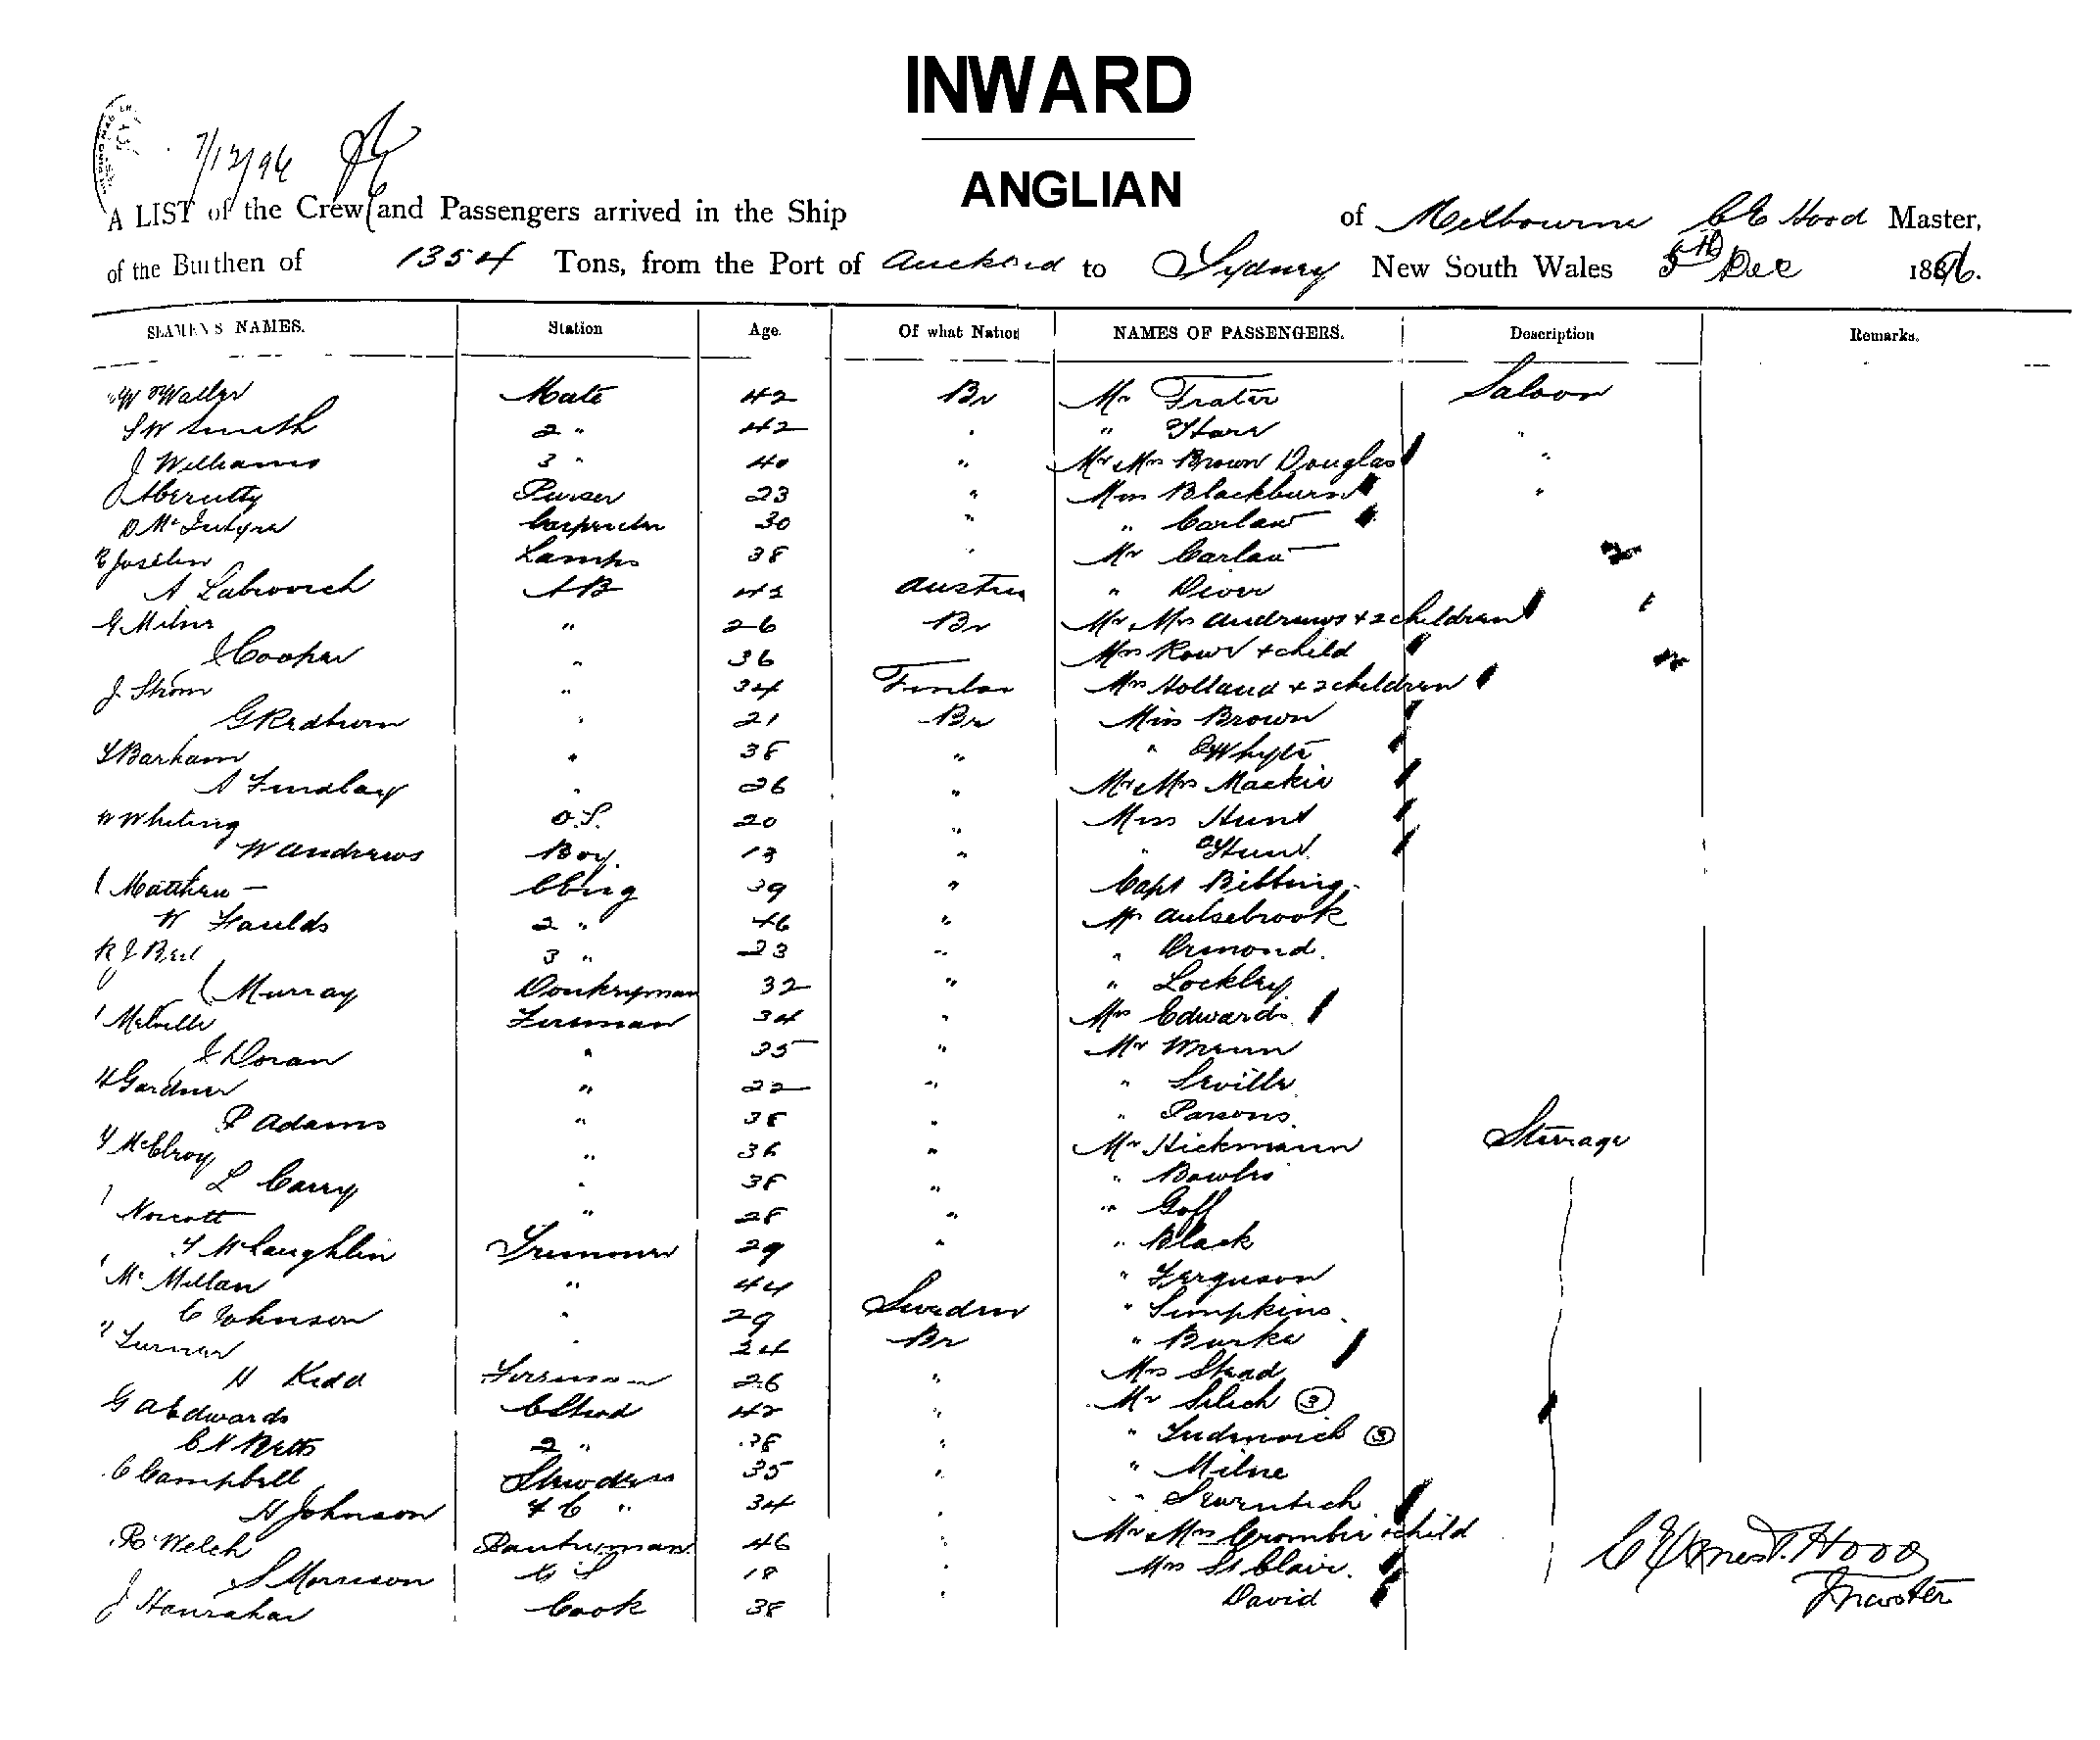 INWARD
7/12/96
ANGLIAN
A LIST of the Crew and Passengers arrived in the Ship of Melbourne C E Hood Master,
of the Burthen of 1354 Tons, from the Port of Auckland to Sydney New South Wales 5th Dec 1896.
SEAMEN'S NAMES. Station Age. Of what Nation NAMES OF PASSENGERS. Description Remarks.
W Waller Mate 42 Br Mr Frater Saloon
S W Smith 2 " 42 " " Harr "
J Williams 3 " 40 " Mr Mrs Brown Douglas "
Abernitty Purser 23 " Miss Blackburn "
D McIntyre Carpenter 30 " " Carlaw
E Joselin Lamps 38 " Mr Carlaw
A. AB Austria " Diver
G Milne " 26 Br Mr Mrs Andrews + 2 children
J Cooper " 36 Mrs Rowe + child
J. Strom " 34 Mrs Holland + 2 children
G Redburn " 21 Br Miss Brown
Barham " 38 " " Whyte
A Findlay " 26 " Mr Mrs Mackie
W Whiting O.S. 20 " Miss Hunt
W Andrews Boy. 13 " " Hunt
Matthew C Eng 39 " Capt Bibbing.
W Faulds 2 " 46 " Mr Aulsebrook
R J Bell 3 " 23 " " Ormond.
Murray Donkeyman 32 " " Lockley
Melville Fireman 34 " Mrs Edwards
J Doran " 35 " Mr Wrenn
H Gardner " 22 " " Seville
P Adams " 38 " " Parsons.
McElroy " 36 " Mr Hickmann Steerage
L Carry " 38 " " Bowles
Norcott " 28 " " Goff
McLaughlin Trimmer 29 " " Black
McMillan " 44 " Ferguson
C Johnson " 29 Sweden " Simpkins.
Turner " 24 Br " Burke
H Kidd Fireman 26 " Mrs Stead
G A Edwards C Stwd 42 " Mr Silich 3
C H Betts 2 " 38 " " 3
C Campbell Stewdess 35 " " Milne
H Johnson F C " 34 " "
R Welch Pantryman 46 " Mr & Mrs Crombie + child
S Morrison C S 18 " Mrs St Clair.
J Hanrahan Cook 38 David
C Ernest. Hood
Master